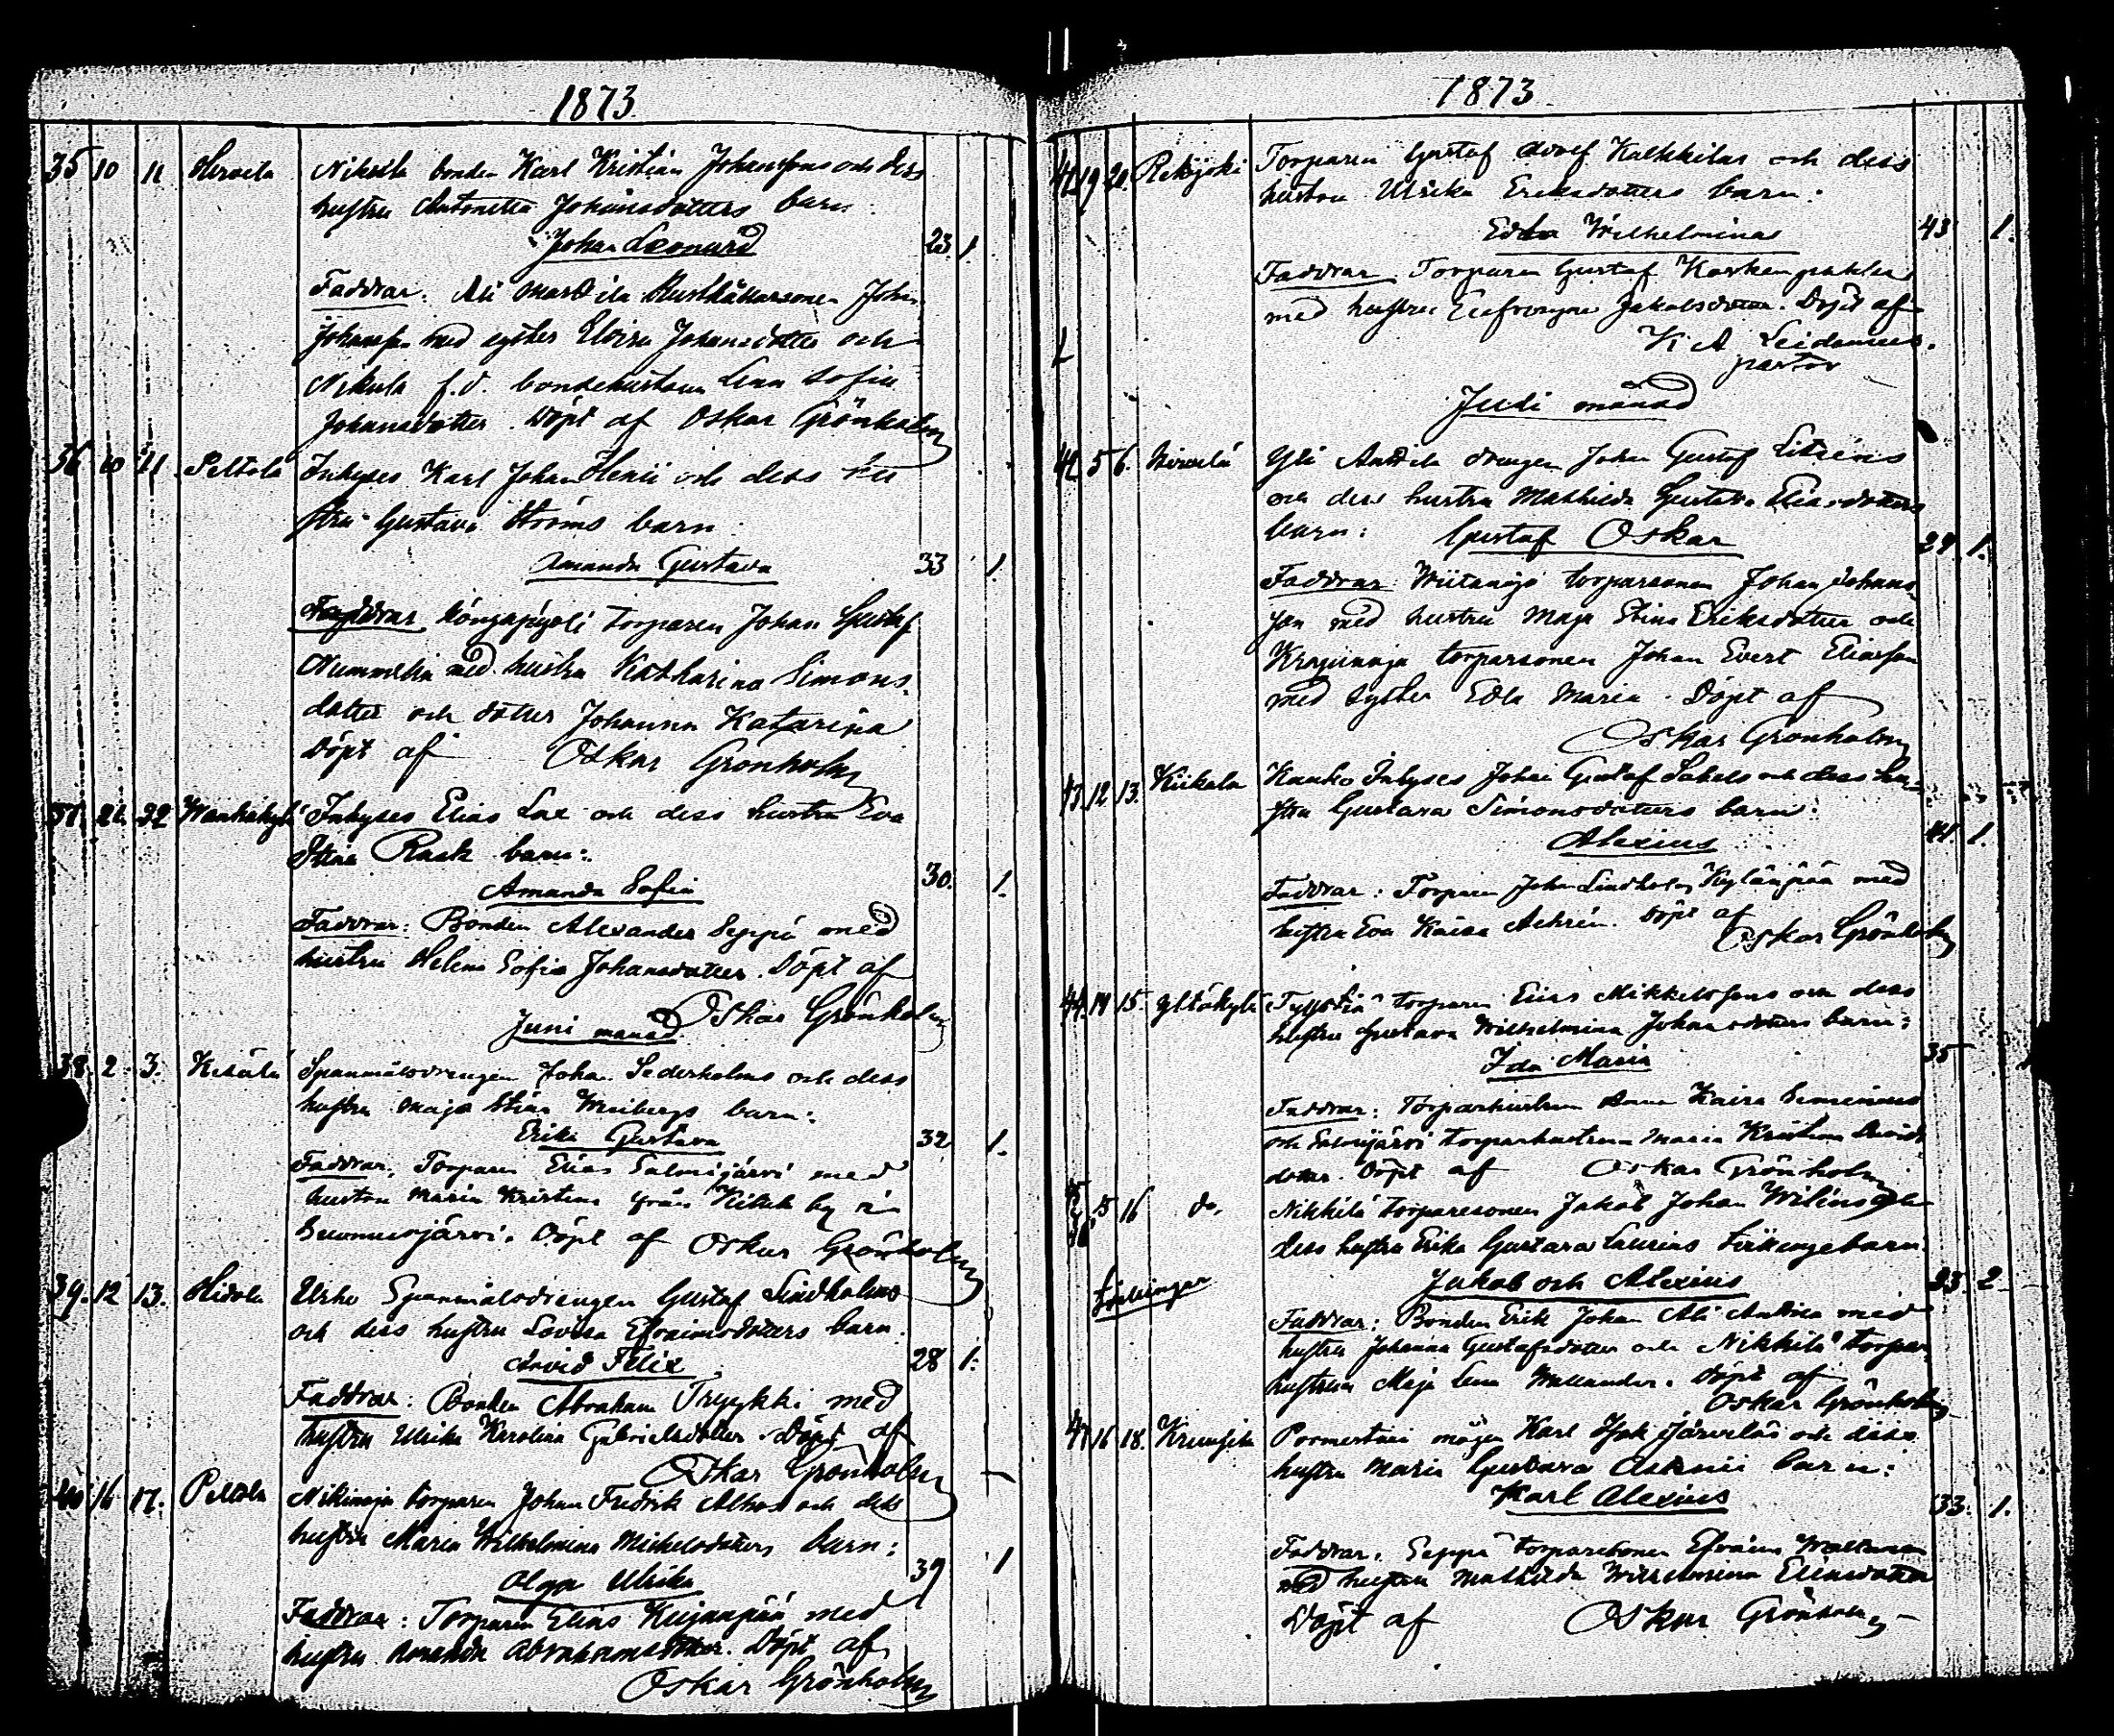 1873.
35 10 11 Hirvelä Nikula bonden Karl Kristian Johanssons och dess
hustru Antonetta Johansdotters barn
Johan Leonard 23. 1
Faddrar: Ali Marttila Johan
Johansson med syster Johansdotter och
Nikula f.d. bondehustrun Lena Sofia
Johansdotter. Döpt af Oskar Grönholm
36 10 11 Peltola Inhyses Karl Johan och dess hu
stru Gustava Ströms barn
Amanda Gustava 33 1.
Faddrar torparen Johan Gustaf
Nummelin med hustru Katharina Simons-
dotter och dotter Johanna Katarina
Döpt af Oskar Grönholm
37. 21 22 Wanhakylä Inhyses Elias Lax och dess hustru Eva
Stina Rask barn:
Amanda Sofia 30. 1.
Faddrar: Bonden Alexander Seppä med
hustru Helena Sofia Johansdotter. Döpt af
Oskar Grönholm
Juni månad
38. 2. 3. Spanmålsdrengen Johan Sederholms och dess
hustru Maja Stina barn:
Erika Gustava 32 1.
Faddrar, Torparen Elias Salmijärvi med
hustru Maria Kristina från by i
Suomusjärvi. Döpt af Oskar Grönholm
39. 12 13. Hidola Urho Spanmålsdrengen Gustaf Lindholms
och dess hustru Lovisa Efraimsdotters barn.
Arvid Felix 28 1.
Faddrar: Bonden Abraham Tryykki med
hustru Ulrika Karolina Gabrielsdotter. Döpt af
Oskar Grönholm
40 16 17. Peltola torparen Johan Fredrik och dess
hustru Maria Wilhelmina Michelsdotters barn:
Olga Ulrika 39 1
Faddrar: Torparen Elias Kujanpää med
hustru Amanda Abrahamsdotter. Döpt af
Oskar Grönholm
1873.
41 19 20. Rekijoki Torparen Gustaf Adolf och dess
hustru Ulrika Eriksdotters barn:
Edla Wilhelmina 43 1.
Faddrar Torparen Gustaf
med hustru Eufrosyne Jakobsdotter. Döpt af
K A Leidenius.
pastor
Juli månad
42 5 6. Hirvelä Yli Anttila drengen Johan Gustaf
och dess hustru Mathilda Gustava Eliasdotters
barn: Gustaf Oskar 29 1.
Faddrar torparsonen Johan Johans-
son med hustru Maja Stina Eriksdotter och
torparsonen Johan Evert Eliasson
med syster Edla Maria. Döpt af
Oskar Grönholm
43. 12 13. Kiikala Inhyses Johan Gustaf och dess hu-
stru Gustava Simonsdotters barn:
Alexius 41. 1.
Faddrar: Torparen Johan Lindholm Kylänpää med
hustru Eva Kaisa . Döpt af
Oskar Grönholm
44. 14 15. Yltäkylä torparen Elias Mikkelssons och dess
hustru Gustava Wilhelmina Johansdotters barn:
Ida Maria 35 1
Faddrar: Torparhustrun Anna Kaisa
och Salmijärvi torparhustrun Maria Kristina Davids-
dotter. Döpt af Oskar Grönholm
45 46 15 16 do. Nikkilä torparesonen Jakob Johan och
dess hustru Erika Gustava barn.
Tvillingar Jakob och Alexius 23. 2
Faddrar: Bonden Erik Johan Ali Anttila med
hustru Johanna Gustafsdotter och Nikkilä torpar-
hustrun Maja Lena Wallander. Döpt af
Oskar Grönholm
47 16 18. mågen Karl Isak Järvelä och dess
hustru Maria Gustava barn:
Karl Alexius 33. 1.
Faddrar. Seppä torparesonen Efraim
med hustru Mathilda Wilhelmina Eliasdotter
Döpt af Oskar Grönholm